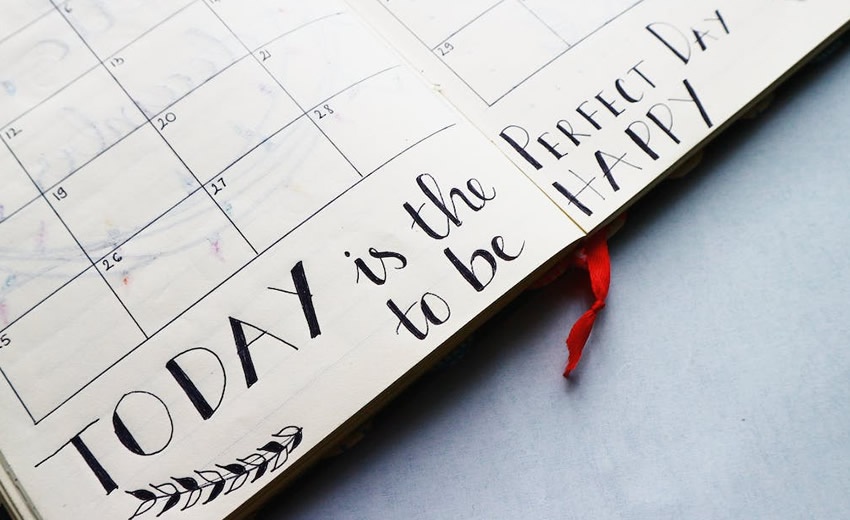 12 13
19 20 21
26 27 28
29
TODAY is the PERFECT DAY
to be HAPPY